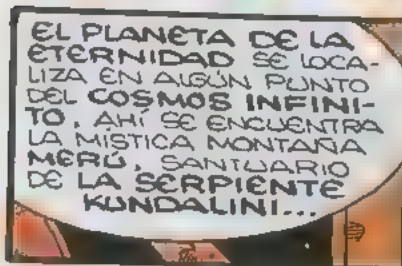 EL PLANETA DE LA
ETERNIDAD SE LOCA-
LIZA EN ALGÚN PUNTO
DEL COSMOS INFINI-
TO. AHÍ SE ENCUENTRA
LA MÍSTICA MONTAÑA
MERÚ, SANTUARIO
DE LA SERPIENTE
KUNDALINI...